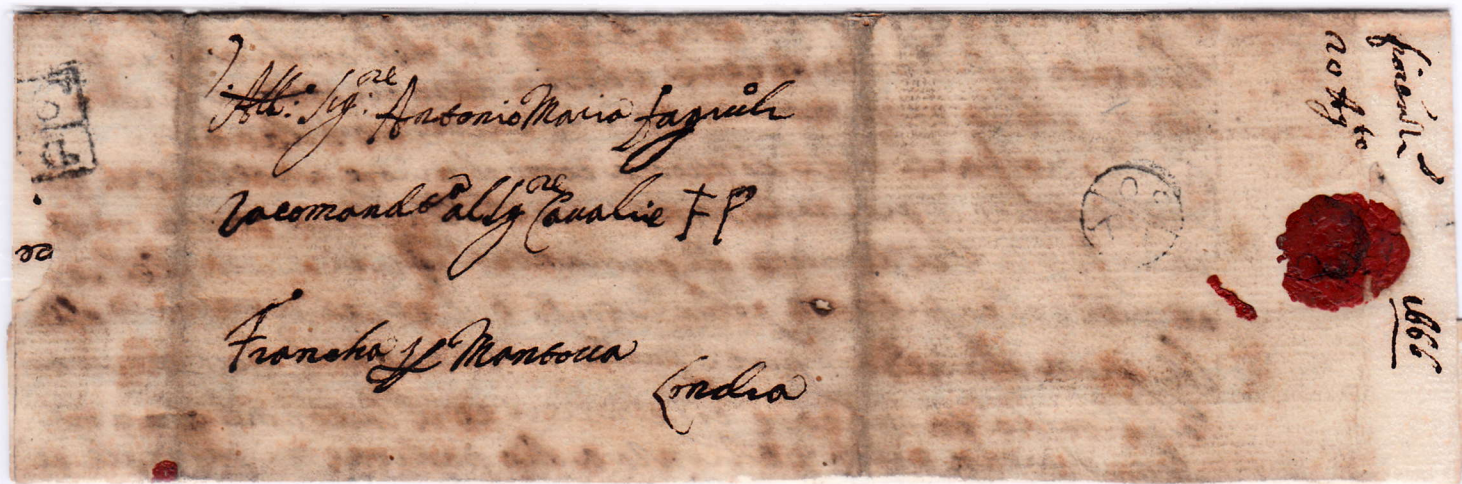 All: Sig:re Antonio Maria
racomand al Sgre Cavalie FP
Francha p Mantoua
Londra
20 Agto
1666